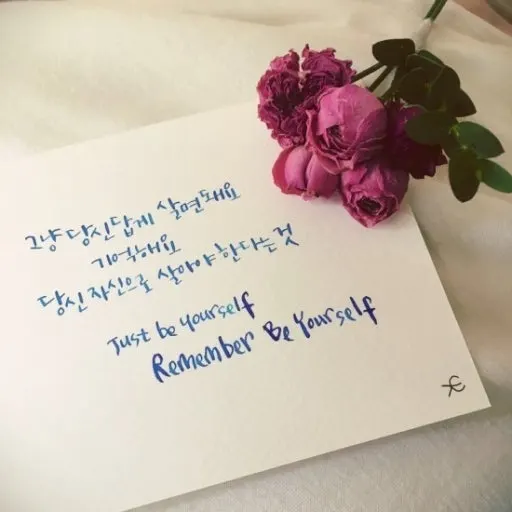 그냥 당신답게 살면돼요
기억해요
당신 자신으로 살아야 한다는것
Just be yourself
Remember Be Yourself